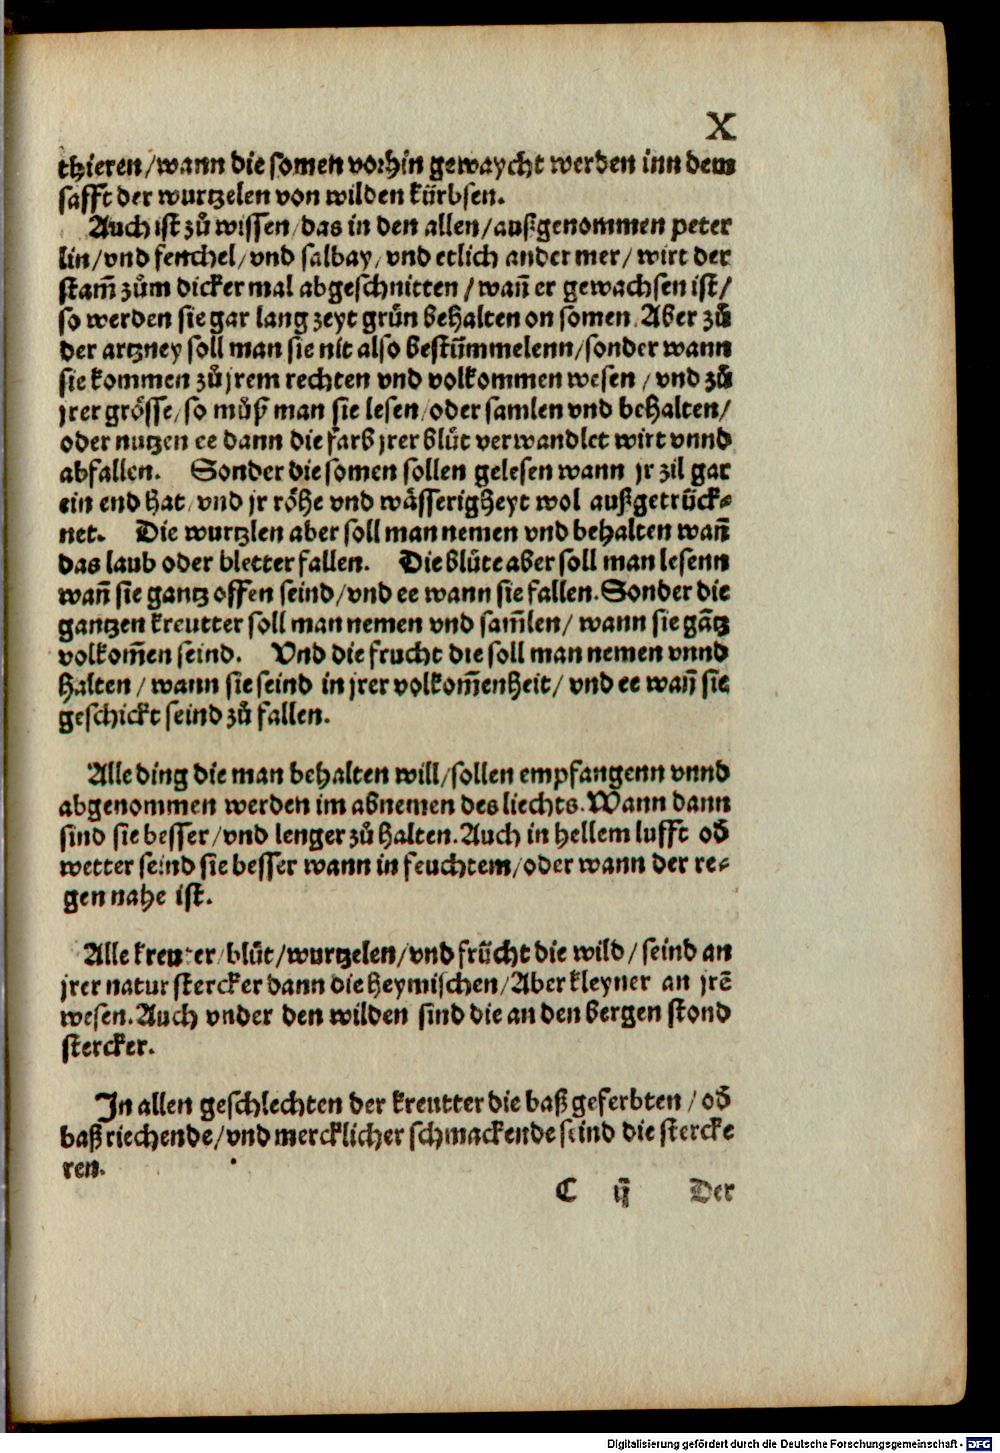 X
thieren/wann die somen vorhin gewaycht werden inn dem
safft der wurtzelen von wilden kürbsen.
Auch ist zů wissen/das in den allen/außgenommen peter
lin/vnd fenchel/vnd salbay/vnd etlich ander mer/wirt der
stam̄ zům dicker mal abgeschnitten/wan̄ er gewachsen ist/
so werden sie gar lang zeyt grün behalten on somen. Aber zů
der artzney soll man sie nit also bestümmelenn/sonder wann
sie kommen zů jrem rechten vnd volkommen wesen/vnd zů
jrer grösse/so můß man sie lesen/oder samlen vnd behalten/
oder nutzen ee dann die farb jrer blůt verwandlet wirt vnnd
abfallen. Sonder die somen sollen gelesen wann jr zil gar
ein end hat/vnd jr röhe vnd wässerigheyt wol außgetrück⸗
net. Die wurtzlen aber soll man nemen vnd behalten wan̄
das laub oder bletter fallen. Die blůte aber soll man lesenn
wan̄ sie gantz offen seind/vnd ee wann sie fallen. Sonder die
gantzen kreutter soll man nemen vnd sam̄len/wann sie gātz
volkom̄en seind. Vnd die frucht die soll man nemen vnnd
halten/wann sie seind in jrer volkom̄enheit/vnd ee wan̄ sie
geschickt seind zů fallen.
Alle ding die man behalten will/sollen empfangenn vnnd
abgenommen werden im abnemen des liechts. Wann dann
sind sie besser/vnd lenger zů halten. Auch in hellem lufft od̄
wetter seind sie besser wann in feuchtem/oder wann der re⸗
gen nahe ist.
Alle kreutter/blůt/wurtzelen/vnd frücht die wild/seind an
jrer natur stercker dann die heymischen/Aber kleyner an jrē
wesen. Auch vnder den wilden sind die an den bergen stond
stercker.
In allen geschlechten der kreutter die baß geferbten/od̄
baß riechende/vnd mercklicher schmackende seind die stercke
ren.
C ij Der
Digitalisierung gefördert durch die Deutsche Forschungsgemeinschaft - DFG